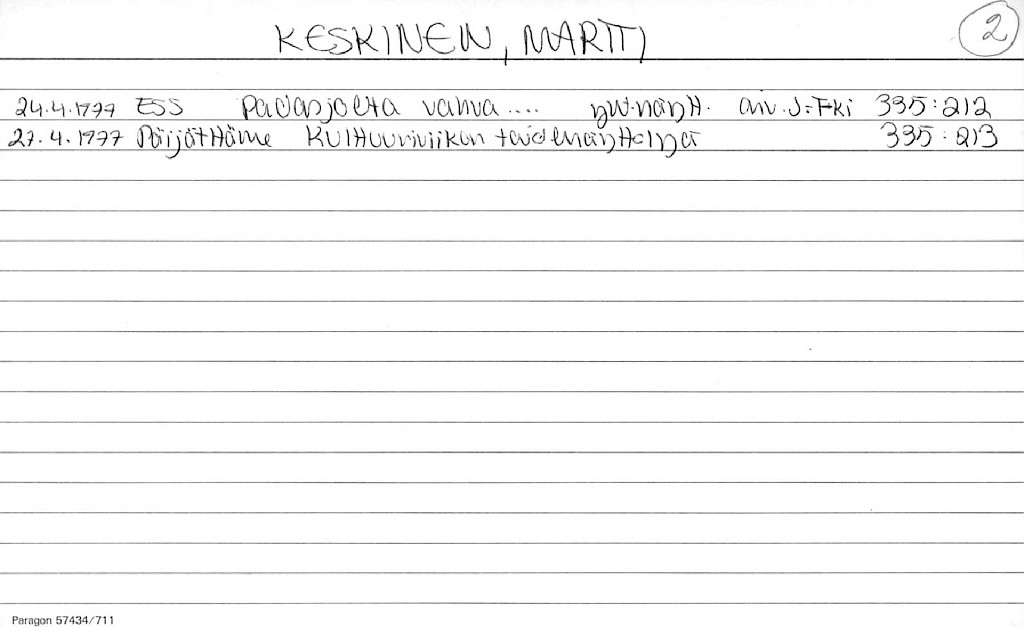 KESKINEN, MARTTI
2
24.4.1977 ESS Padasjoelta vahva .... ryut.näytt. arv. J:Fki 335:212
27.4.1977 Päijät Häme Kulttuuriviikon taidenäyttelyjä 335:213
Paragon 57434/711